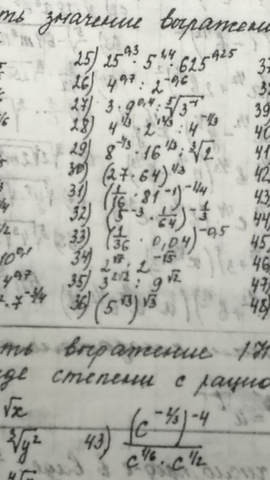 ть значение выражени
25) 25^0,3 · 5^1,4 : 625^0,25 37
26) 4^0,7 : 2^-0,6
27) 3 · 9^0,4 : ⁵√3^-1
28) 4^1/3 · 2^1/3 : 4^-1/3 40
29) 8^-1/3 · 16^1/3 : ³√2 41
30) (27 · 64)^1/3
31) (1/16 · 81^-1)^-1/4 43
32) (5^-3 · 1/64)^-1/3 44
33) (1/36 · 0,04)^-0,5 45
10^0,1 34) 2^√5 : 2^-√5 46
4^0,7 35) 3^2√2 : 9^√2 47
· 7^-3/4 36) (5^√3)^√3 48
ть выражение
де степени с рацио
√x
³√y² 43) (c^-2/3)^-4 / c^1/6 · c^1/2